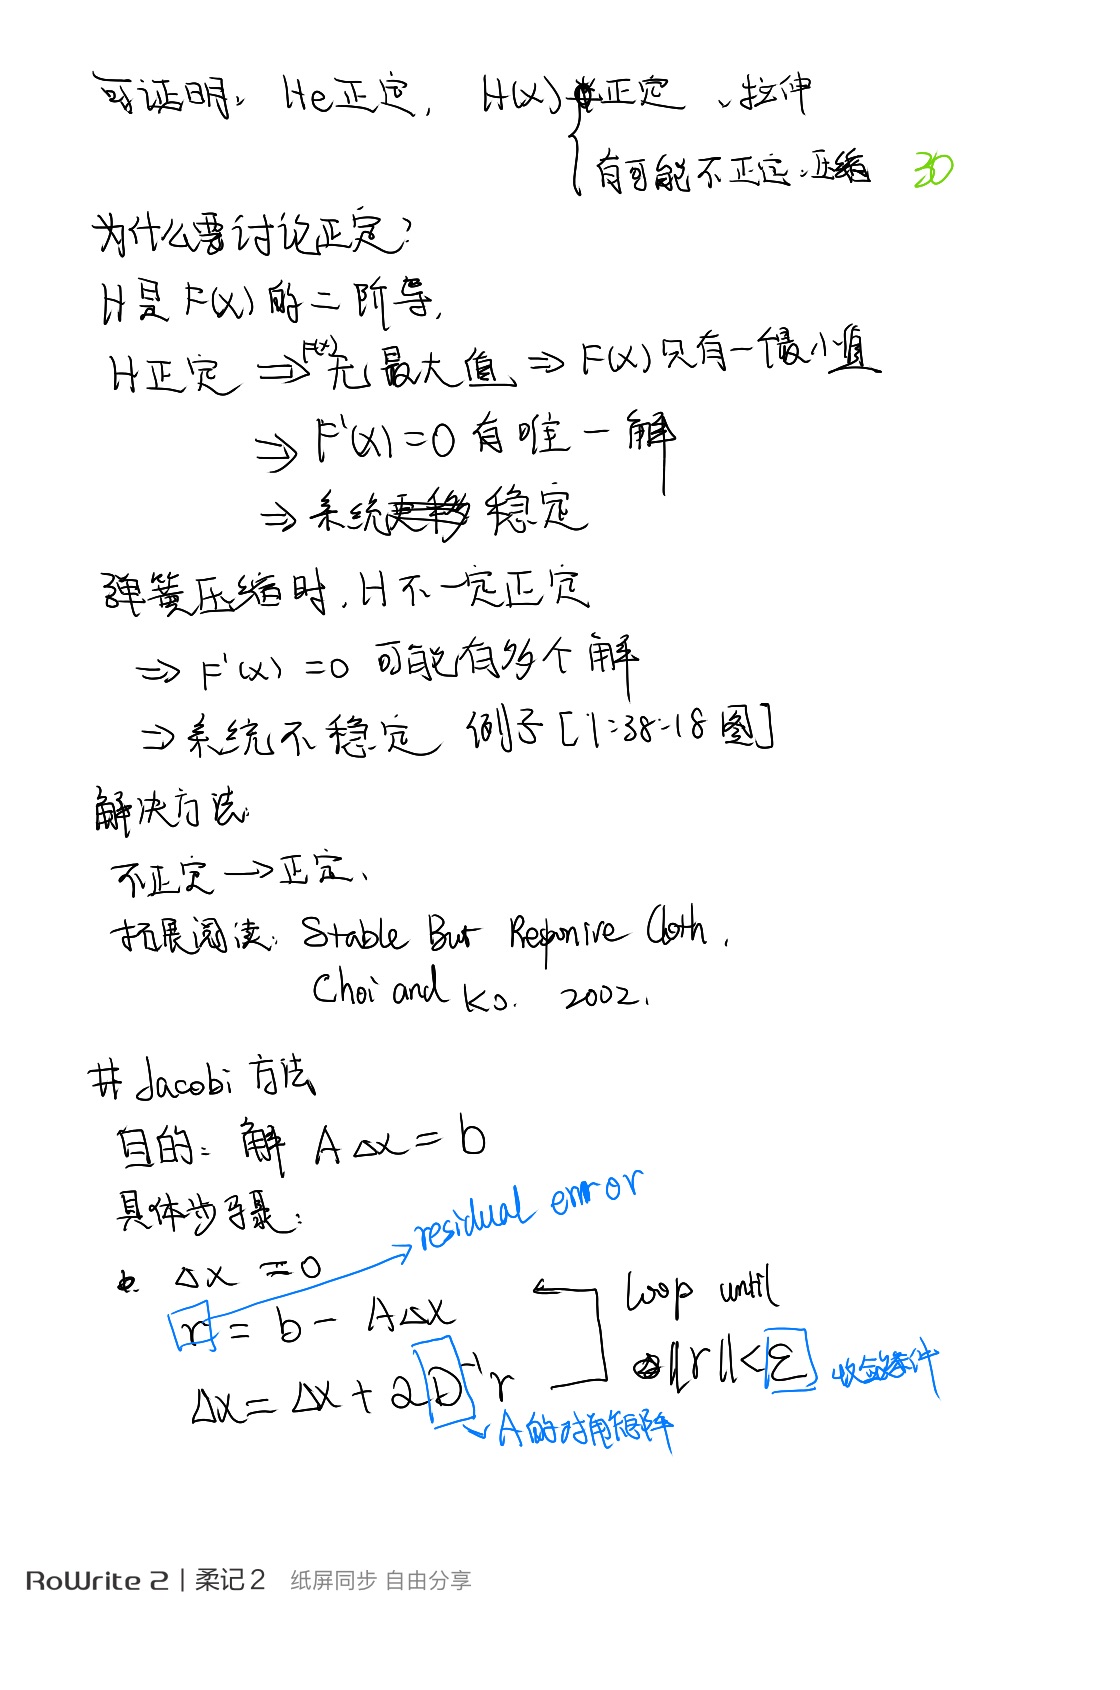 可证明: He正定, H(x) 正定 、拉伸
有可能不正定、压缩 3D
为什么要讨论正定?
H是F(x)的二阶导,
H正定 ⇒ F(x)无最大值 ⇒ F(x)只有一个最小值
⇒ F'(x)=0有唯一解
⇒ 系统稳定
弹簧压缩时, H不一定正定
⇒ F'(x)=0 可能有多个解
⇒系统不稳定 例子[1:38:18图]
解决方法:
不正定→正定、
拓展阅读: Stable But Responive Cloth,
Choi and Ko. 2002.
# Jacobi方法
目的: 解 A△x=b
具体步骤:
residual error
△x=0
loop until
r = b - A△x
||r||<ε 收敛条件
△x = △x + 2D⁻¹r
A的对角矩阵
RoWrite 2 | 柔记2 纸屏同步 自由分享